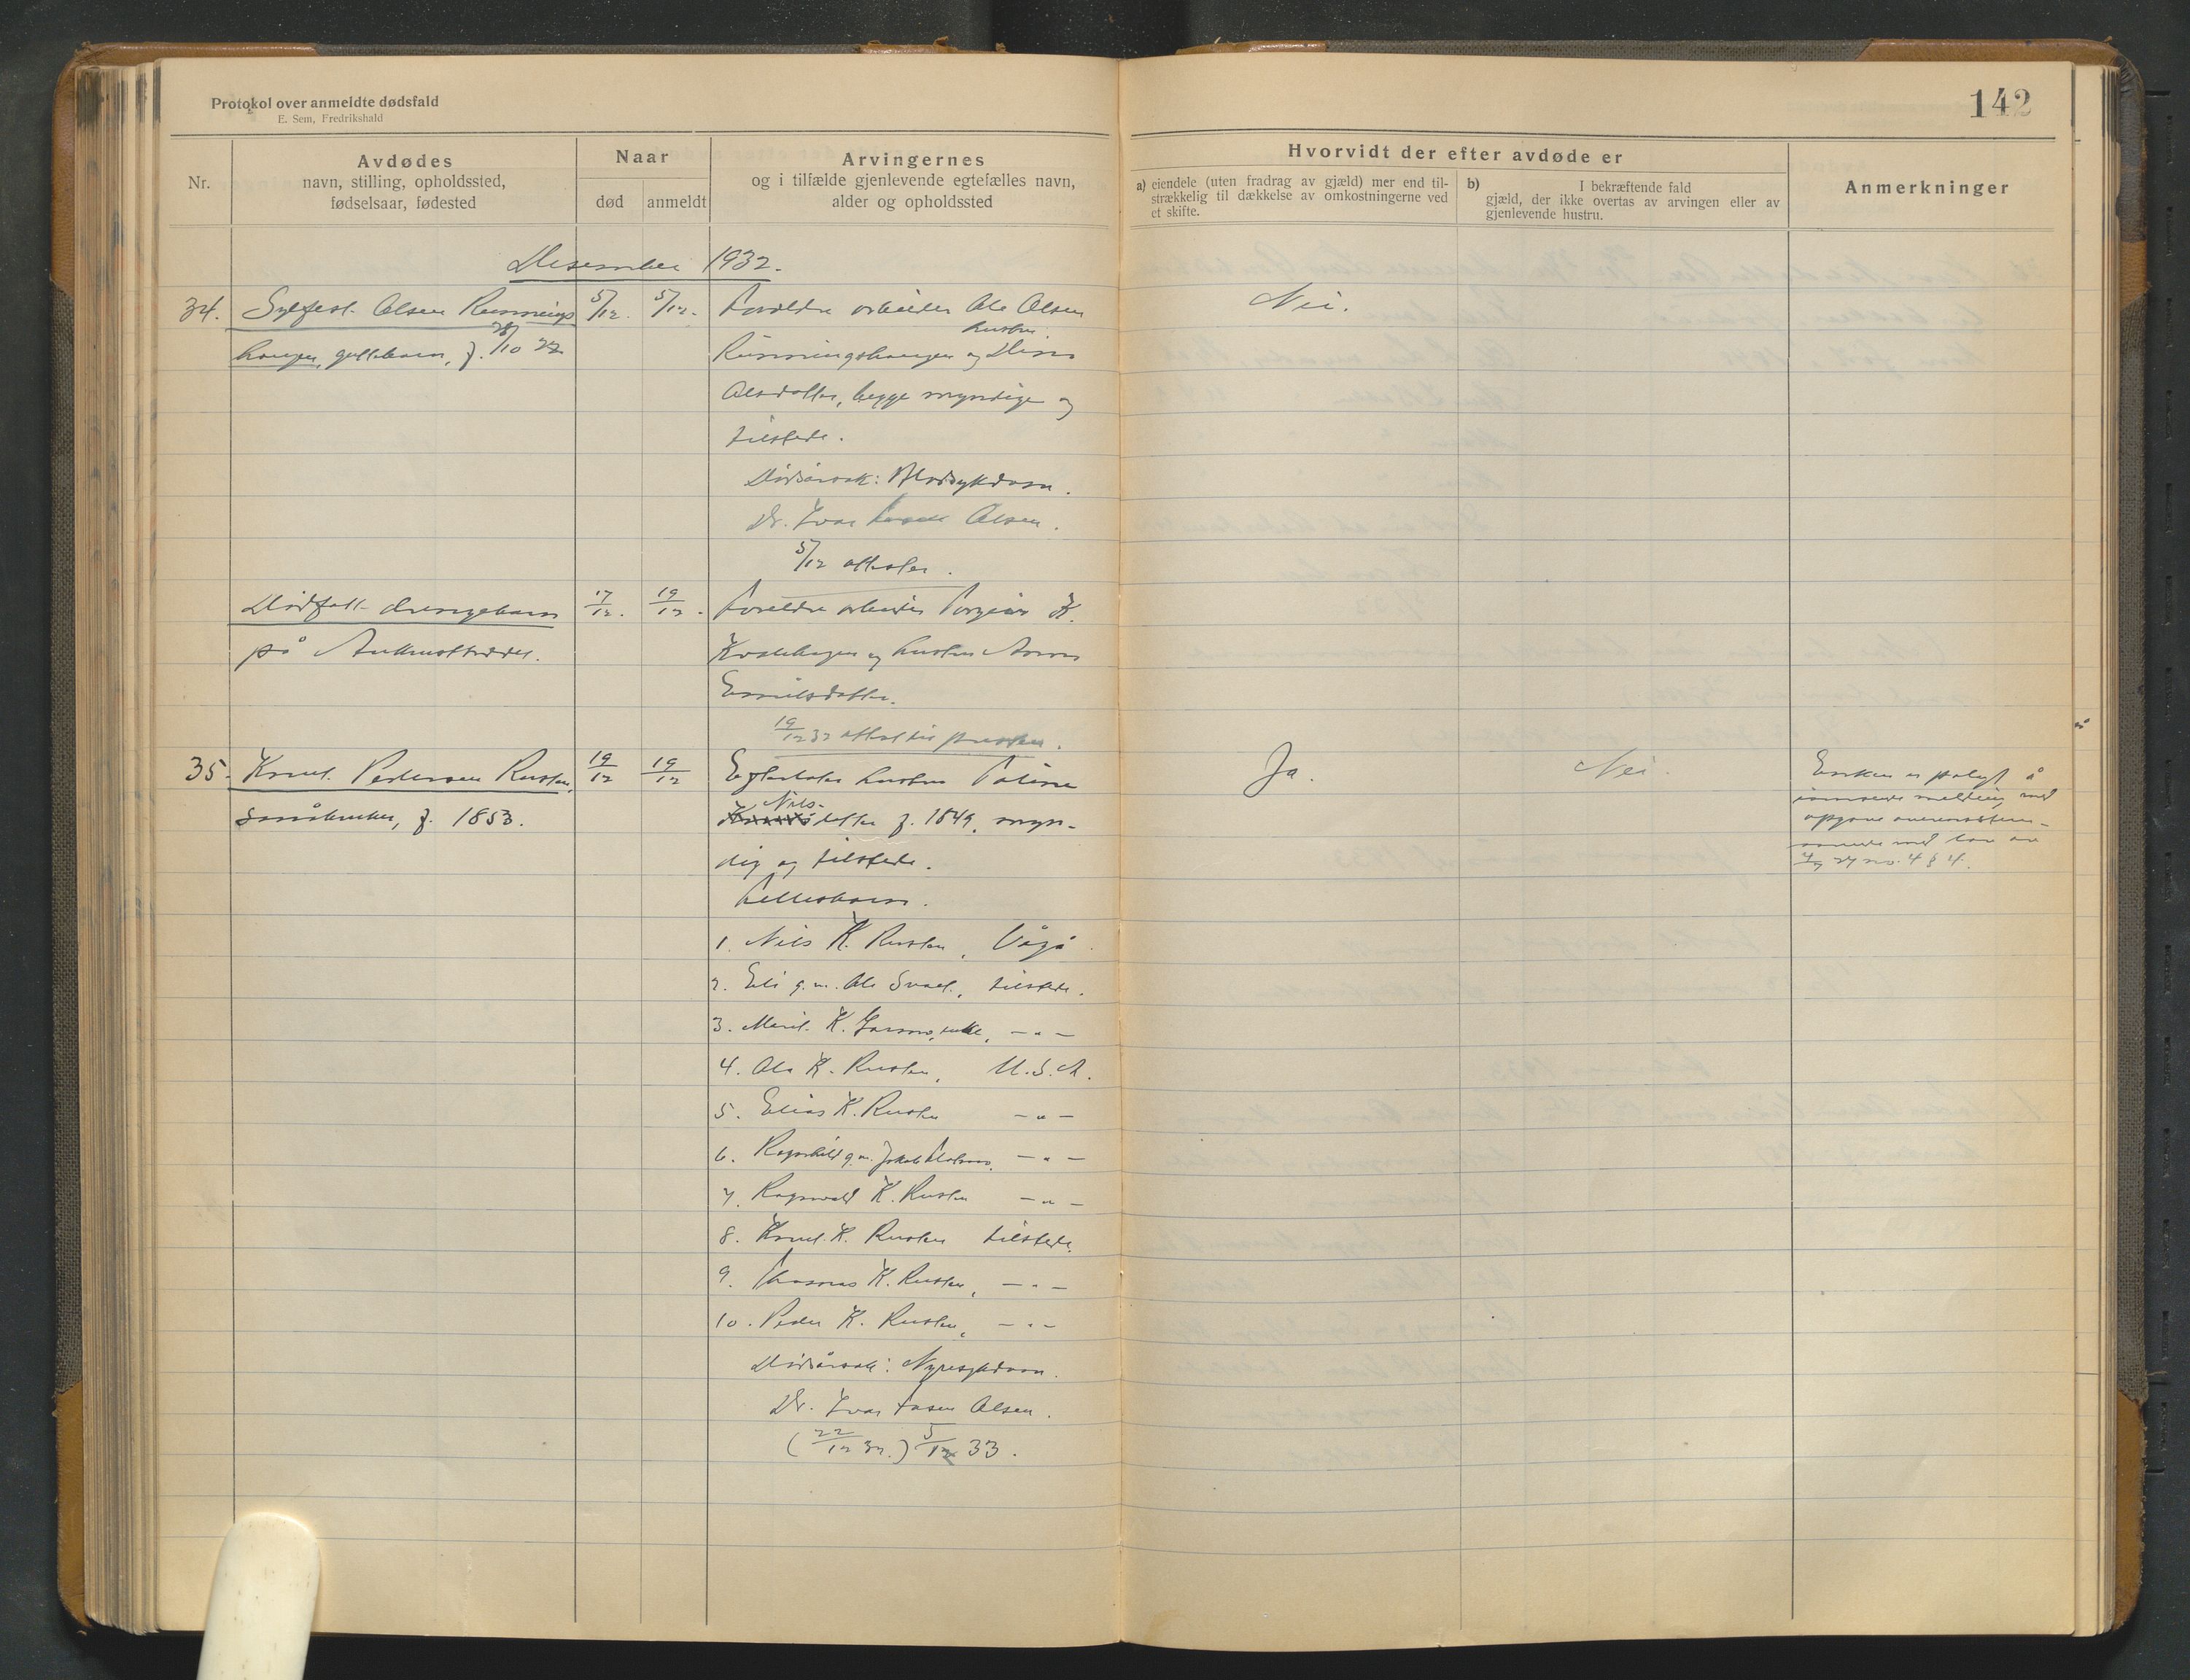 Protokol over anmeldte dødsfald
E. Sem, Fredrikshald
142
Nr.
Avdødes
navn, stilling, opholdssted,
fødselsaar, fødested
Naar
død
anmeldt
Arvingernes
og i tilfælde gjenlevende egtefælles navn,
alder og opholdssted
Hvorvidt der efter avdøde er
a) eiendele (uten fradrag av gjæld) mer end til-
strækkelig til dækkelse av omkostningerne ved
et skifte.
b) I bekræftende fald
gjæld, der ikke overtas av arvingen eller av
gjenlevende hustru.
Anmerkninger
Desember 1932.
34. Sylfest Olsen Rusnings
5/12. 5/12.
Foreldre arbeider Ole Olsen
Nei.
haugen, guttebarn, f. 10
hustru
Rusningshaugen og
Olesdatter, begge myndige og
tilstede.
Dødsårsak: Blodsykdom.
Dr. Ivar Olsen.
5/12 attester.
Dødfødt drengebarn
17/12. 19/12.
Foreldre arbeider Torgeir K.
på
og hustru Anna
Emilsdatter.
19/12 32 presten.
35. Knut Pedersen Rusten,
19/12 19/12
Efterlater hustru
Ja.
Nei.
småbruker, f. 1853.
Nils-
datter f. 1849, myn-
dig og tilstede.
Fellesbarn.
1. Nils K. Rusten, Vågå.
2. Eli g.m. Ole Svael, tilstede.
3. Marit K. enke, —"—
4. Ole K. Rusten, U.S.A.
5. Elias K. Rusten —"—
6. Ragnhild g.m. Jakob —"—
7. Ragnvald K. Rusten —"—
8. Knut K. Rusten tilstede.
9. Thomas K. Rusten, —"—
10. Peder K. Rusten, —"—
Dødsårsak: Nyresykdom.
Dr. Ivar Olsen.
(22/12 32.) 33.
Enken er pålagt å
innsende melding med
opgave overensstem-
mende med lov av
no. 4 § 4.